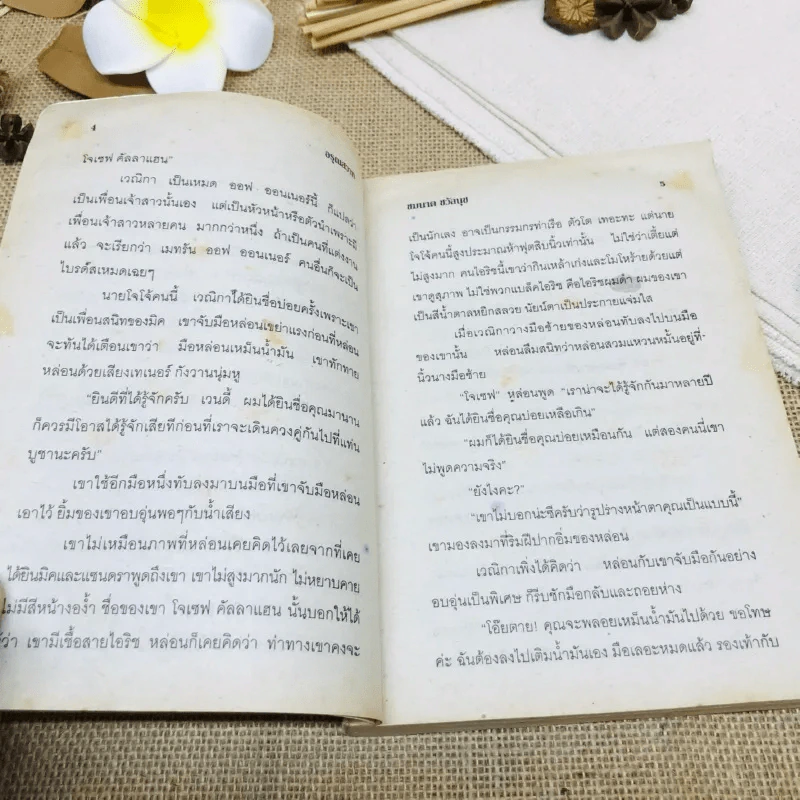 4
อรุณสวาท
โจเซฟ คัลลาแฮน"
เวณิกา เป็นเหมด ออฟ ออนเนอร์นี้ ก็แปลว่า
เป็นเพื่อนเจ้าสาวนั้นเอง แต่เป็นหัวหน้าหรือตัวนำเพราะมี
เพื่อนเจ้าสาวหลายคน มากกว่าหนึ่ง ถ้าเป็นคนที่แต่งงาน
แล้ว จะเรียกว่า เมทรัน ออฟ ออนเนอร์ คนอื่นก็จะเป็น
ไบรด์สเหมดเฉยๆ
นายโจโจ้คนนี้ เวณิกาได้ยินชื่อบ่อยครั้งเพราะเขา
เป็นเพื่อนสนิทของมิค เขาจับมือหล่อนเขย่าแรงก่อนที่หล่อน
จะทันได้เตือนเขาว่า มือหล่อนเหม็นน้ำมัน เขาทักทาย
หล่อนด้วยเสียงเทเนอร์ กังวานนุ่มหู
"ยินดีที่ได้รู้จักครับ เวนดี้ ผมได้ยินชื่อคุณมานาน
ก็ควรมีโอาสได้รู้จักเสียทีก่อนที่เราจะเดินควงคู่กันไปที่แท่น
บูชานะครับ"
เขาใช้อีกมือหนึ่งทับลงมาบนมือที่เขาจับมือหล่อน
เอาไว้ ยิ้มของเขาอบอุ่นพอๆกับน้ำเสียง
เขาไม่เหมือนภาพที่หล่อนเคยคิดไว้เลยจากที่เคย
ได้ยินมิคและแซนดราพูดถึงเขา เขาไม่สูงมากนัก ไม่หยาบคาย
ไม่มีสีหน้างอง้ำ ชื่อของเขา โจเซฟ คัลลาแฮน นั้นบอกให้ได้
ว่า เขามีเชื้อสายไอริช หล่อนก็เคยคิดว่า ท่าทางเขาคงจะ
5
เป็นนักเลง อาจเป็นกรรมกรท่าเรือ ตัวโต เทอะทะ แต่นาย
โจโจ้คนนี้สูงประมาณห้าฟุตสิบนิ้วเท่านั้น ไม่ใช่ว่าเตี้ยแต่
ไม่สูงมาก คนไอริชนี้เขาว่ากินเหล้าเก่งและโมโหร้ายด้วยแต่
เขาดูสุภาพ ไม่ใช่พวกแบล็คไอริช คือไอริชผมดำ ผมของเขา
เป็นสีน้ำตาลหยิกสลวย นัยน์ตาเป็นประกายแจ่มใส
เมื่อเวณิกาวางมือซ้ายของหล่อนทับลงไปบนมือ
ของเขานั้น หล่อนลืมสนิทว่าหล่อนสวมแหวนหมั้นอยู่ที่-
นิ้วนางมือซ้าย
"โจเซฟ" หล่อนพูด "เราน่าจะได้รู้จักกันมาหลายปี
แล้ว ฉันได้ยินชื่อคุณบ่อยเหลือเกิน"
"ผมก็ได้ยินชื่อคุณบ่อยเหมือนกัน แต่สองคนนี่เขา
ไม่พูดความจริง"
"ยังไงคะ?"
"เขาไม่บอกน่ะซีครับว่ารูปร่างหน้าตาคุณเป็นแบบนี้"
เขามองลงมาที่ริมฝีปากอิ่มของหล่อน
เวณิกาเพิ่งได้คิดว่า หล่อนกับเขาจับมือกันอย่าง
อบอุ่นเป็นพิเศษ ก็รีบชักมือกลับและถอยห่าง
"โอ๊ยตาย! คุณจะพลอยเหม็นน้ำมันไปด้วย ขอโทษ
ค่ะ ฉันต้องลงไปเติมน้ำมันเอง มือเลอะหมดแล้ว รองเท้ากับ